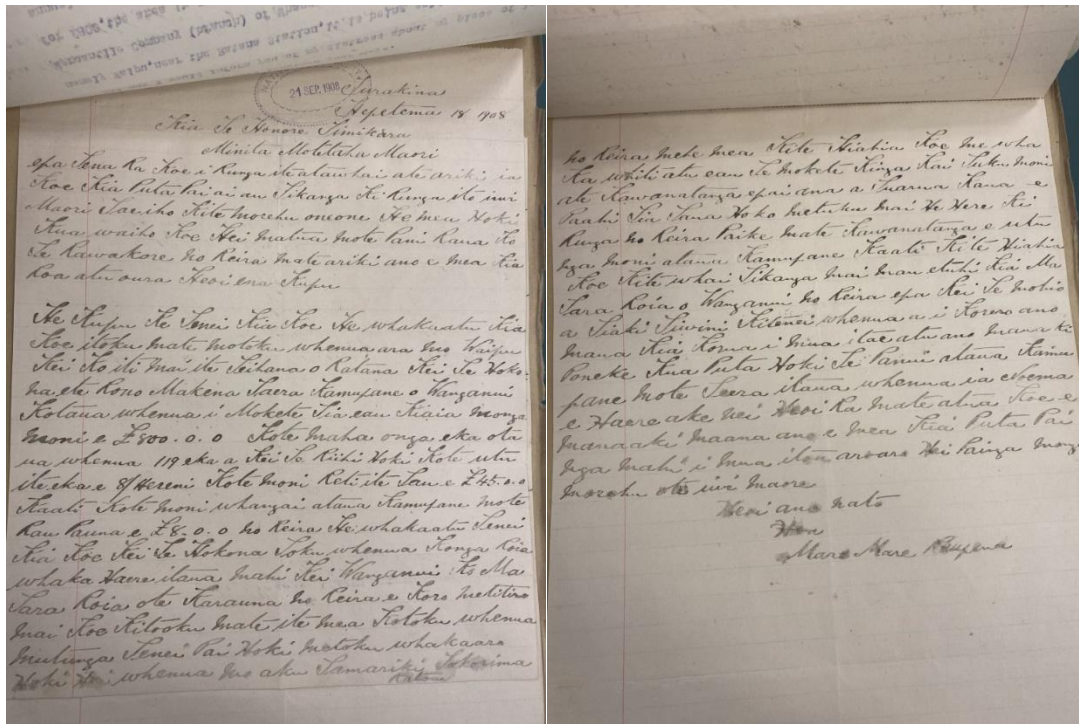 for 1908, the area is
Mercantile Company (branch) of Wanganui
namely Waipu, near the Ratana Station, it is being sold
21 SEP. 1908
Turakina
Hepetema 18 1908
Kia Te Honore Timikara
Minita Motetaha Maori
epa Tena Ra Koe i Runga ite atawhai ate ariki ia
Koe Kia Puta Pai ai au Tikanga Ki Runga ito iwi
Maori Toe iho Kite morehu oneone He mea Hoki
Kua waiho Koe Hei matua mote Pani Raua Ko
Te Rawakore no Reira mate ariki ano e mea Kia
Roa atu oura Heoi ena Kupu
He Kupu Ke Tenei Kia Koe He whakaatu Kia
Koe itoku mate motoku whenua ara mo Waipu
Kei Ko iti mai ite Teihana o Ratana Kei Te Hoko-
na ete Rono Makena Taera Kamupane o Wanganui
Kotaua whenua i Mokete Tia eau Kiaia monga
moni e £800.0.0 Kote maha onga eka ota
ua whenua 119 eka a Kei Te Riihi Hoki Kote utu
ite eka e 8/Hereni Kote moni Reti ite Tau e £45.0.0
Kaati Kote moni whangai atana Kamupane mote
Rau Pauna e £8.0.0 no Reira He whakaatu Tenei
Kia Koe Kei Te Hokona Toku whenua Konga Roia
whaka Haere itana mahi Kei Wanganui Ko Ma
Tara Roia ote Karauna no Reira e Koro metitiro
mai Koe Kitooku mate ite mea Kotoku whenua
mutunga Tenei Pai Hoki metoku whakaaro
Hoki Hei whenua mo aku Tamariki Tokorima
Katoa
no Reira mehe mea Kite Hiahia Koe me wha
Ka whiti atu eau Te Mokete Kinga Kai Tuku moni
ate Kawanatanga epai ana a Tuarua Kana e
Paahi Tiu Tana Hoko metuku mai He Here Ki
Runga no Reira Paike mate Kawanatanga e utu
nga moni atana Kamupane Kaati Kite Hiahia
Koe Kite whai Tikanga mai mau etuhi Kia Ma
Tara Roia o Wanganui no Reira epa Kei Te Mohio
a Tiaki Tiwini Kitenei whenua a i Korero ano
maua Kia Korua i mua itae atu ano maua ki
Poneke Kua Puta Hoki Te Panui atana Kamu
pane mote Teera itaua whenua ia Noema
e Haere ake nei Heoi Ra mate atua Koe e
manaaki maana ano e mea Kia Puta Pai
nga mahi i mua iton aroaro Hei Painga mong
morehu ote iwi maore
Heoi ano nato
Hoa
Mare Mare Reupena